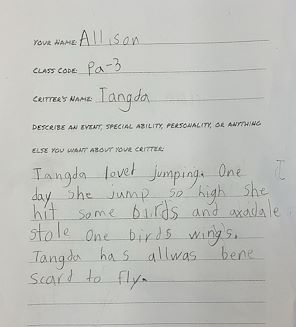 YOUR NAME: Allison
CLASS CODE: Pa-3
CRITTER'S NAME: Tangda
DESCRIBE AN EVENT, SPECIAL ABILITY, PERSONALITY, OR ANYTHING
ELSE YOU WANT ABOUT YOUR CRITTER:
Tangda lovet jumping. One
day she jump so high she
hit some birds and axadale
stole one birds wings.
Tangda has allwas bene
scard to fly.